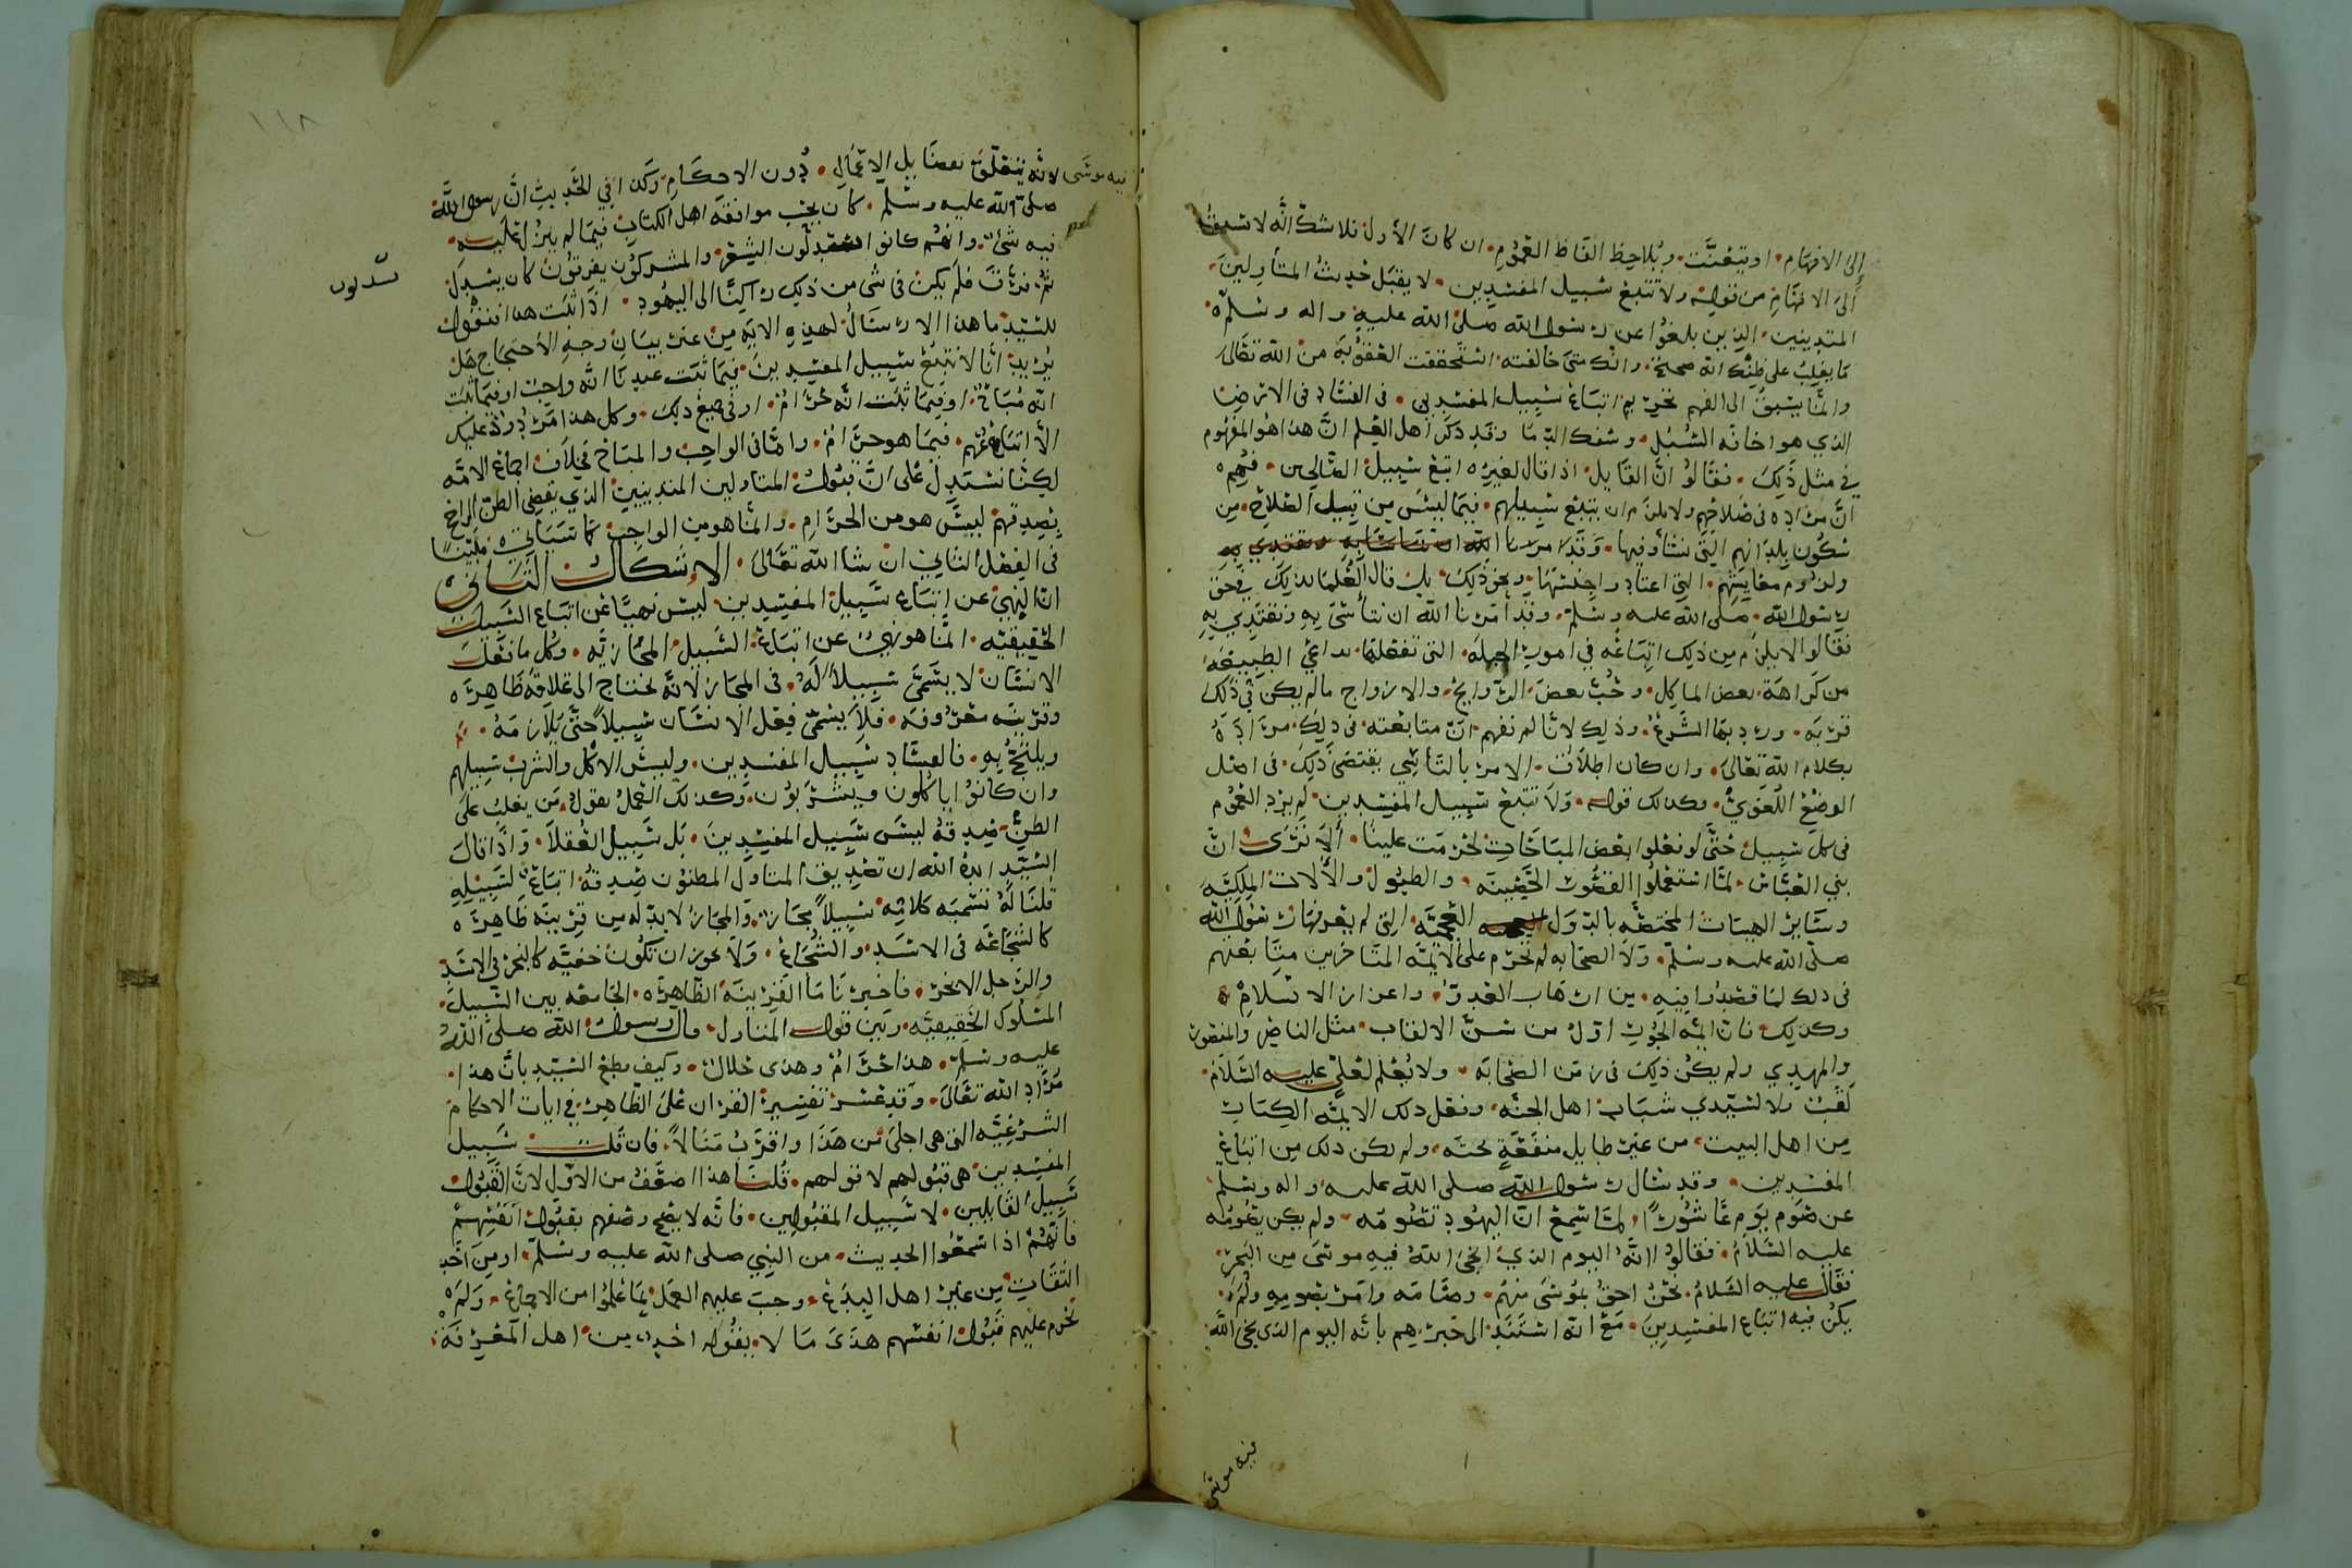 إلى الافهام او يتعنت ويلاحظ الفاظ العموم ان كان الأول فلا شك انه لا يسبق
الى الافهام من قوله ولا تتبع سبيل المفسدين لا يقبل حديث المتأولين
المتدينين الذين بلغوا عن رسول الله صلى الله عليه واله وسلم
ما يغلب على ظنك انه صحيح وانك متى خالفته استحققت العقوبة من الله تعالى
وانما يسبق الى الفهم تحريم اتباع سبيل المفسدين في الفساد في الارض
الذي هو اخافه السبل وسفك الدما وقد ذكر اهل العلم ان هذا هو المفهوم
في مثل ذلك فقالوا ان القايل اذا قال لغيره اتبع سبيل الصالحين فهم
ان مراده في صلاحهم ولا يلزم ان يتبع سبيلهم فيما ليس من قبيل الصلاح من
سكون بلدانهم التي نشأوا فيها وقد امرنا الله ان نتأسى به ونقتدي به
ولزوم معايشهم التي اعتادوا جنسها ونحو ذلك بل قال العلما بذلك في حق
رسول الله صلى الله عليه وسلم وقد امرنا الله ان نتأسى به ونقتدي به
فقالوا لا يلزم من ذلك اتباعه في امور الجبله التي تفعلها بداعي الطبيعه
من كراهة بعض الماكل وحب بعض الروايح والازواج ما لم يكن في ذلك
قربه ورد بها الشرع وذلك لانا لم نفهم ان متابعته في ذلك مراده
بكلام الله تعالى وان كان اطلاق الامر بالتاسي يقتضي ذلك في اصل
الوضع اللغوي وكذلك قوله ولا تتبع سبيل المفسدين لم يرد العموم
في كل سبيل حتى لو فعلوا بعض المباحات لحرمت علينا ألا ترى ان
بني العباس لما استعملوا القصور الحصينه والطبول والألات الملكيه
وساير الهيئات المختصه بالدول العجميه التي لم يعرفها رسول الله
صلى الله عليه وسلم ولا الصحابه لم تحرم على الائمه المتأخرين متابعتهم
في ذلك لما قصدوا فيه من ارهاب العدو واعزاز الاسلام
وكذلك فان ائمه الجور اول من سن الالقاب مثل الناصر والمنصور
والمهدي ولم يكن ذلك في زمن الصحابه ولا يعلم لعلي عليه السلام
لقب ولا لسيدي شباب اهل الجنه وفعل ذلك الايمه الكبار
من اهل البيت من غير طايل منفعة تحته ولم يكن ذلك من اتباع
المفسدين وقد سال رسول الله صلى الله عليه واله وسلم
عن صوم يوم عاشورا لما سمع ان اليهود تصومه ولم يكن يصومه
عليه السلام فقالوا انه اليوم الذي انجى الله فيه موسى من البحر
فقال عليه السلام نحن احق بموسى منهم وصامه وامر بصومه ولم
يكن فيه اتباع المفسدين مع انه استند الى خبرهم بانه اليوم الذي نجى الله
فيه موسى
فيه موسى لانه يتعلق بفضايل الاعمال دون الاحكام وكذا في الحديث ان رسول الله
صلى الله عليه وسلم كان يحب موافقة اهل الكتاب فيما لم ينزل عليه
فيه شي وانهم كانوا يسدلون الشعر والمشركون يفرقون كان يسدل
ثم فرق فلم يكن في شي من ذلك راكنا الى اليهود اذا ثبت هذا فنقول
للسيد ما هذا الارسال لهذه الايه من غير بيان وجه الأحتجاج هل
يريد انا لا نتبع سبيل المفسدين فيما ثبت عندنا انه واجب او فيما ثبت
انه مباح او فيما ثبت انه حرام او في جميع ذلك وكل هذا مردود عليك
الا اتباعهم فيما هو حرام واما في الواجب والمباح فخلاف اجماع الامه
لكنا نستدل على ان قبول المتاولين المتدينين الذي يقضي الظن الراجح
بصدقهم ليس هو من الحرام وانما هو من الواجب كما سياتي مبينا
في الفصل الثاني ان شا الله تعالى الاشكال الثاني
ان النهي عن اتباع سبيل المفسدين ليس نهيا عن اتباع السبيل
الحقيقيه انما هو نهي عن اتباع السبيل المجازيه وكل ما فعل
الانسان لا يسمى سبيلا له في المجاز لانه يحتاج الى علاقه ظاهره
وقرينه معروفه فلا يسمى فعل الانسان سبيلا حتى يلازمه
ويلهج به فالفساد سبيل المفسدين وليس الاكل والشرب سبيلهم
وان كانوا ياكلون ويشربون وكذلك العمل بقول من يغلب على
الظن صدقه ليس سبيل المفسدين بل سبيل العقلا واذا قال
السيد ايده الله ان تصديق المتاول المظنون صدقه اتباع لسبيله
قلنا له تسميه كلامه سبيلا مجاز والمجاز لا بد له من قرينه ظاهره
كالشجاعه في الاسد والشجاع ولا يجوز ان تكون خفيه كالبخر في الاسد
والرجل الابخر فاخبرنا ما القرينه الظاهره الجامعه بين السبيل
المسلوك الحقيقيه وبين قول المتاول قال رسول الله صلى الله
عليه وسلم هذا حرام وهذا حلال وكيف يقطع السيد بان هذا
مراد الله تعالى وقد عسر تفسير القران على الظاهر في ايات الاحكام
الشرعيه التي هي اجلى من هذا واقرب منالا فان قلت سبيل
المفسدين هي قبولهم لا قولهم قلنا هذا اضعف من الاول لان القبول
سبيل القابلين لا سبيل المقبولين فانه لا يصح وصفهم بقبول انفسهم
فانهم اذا سمعوا الحديث من النبي صلى الله عليه وسلم او من احد
الثقات من غير اهل البدع وجب عليهم العمل بما علموا من الاجماع ولم
يحرم عليهم قبول انفسهم هذى ما لا يقوله احد من اهل المعرفه
يسدلون
١١٨